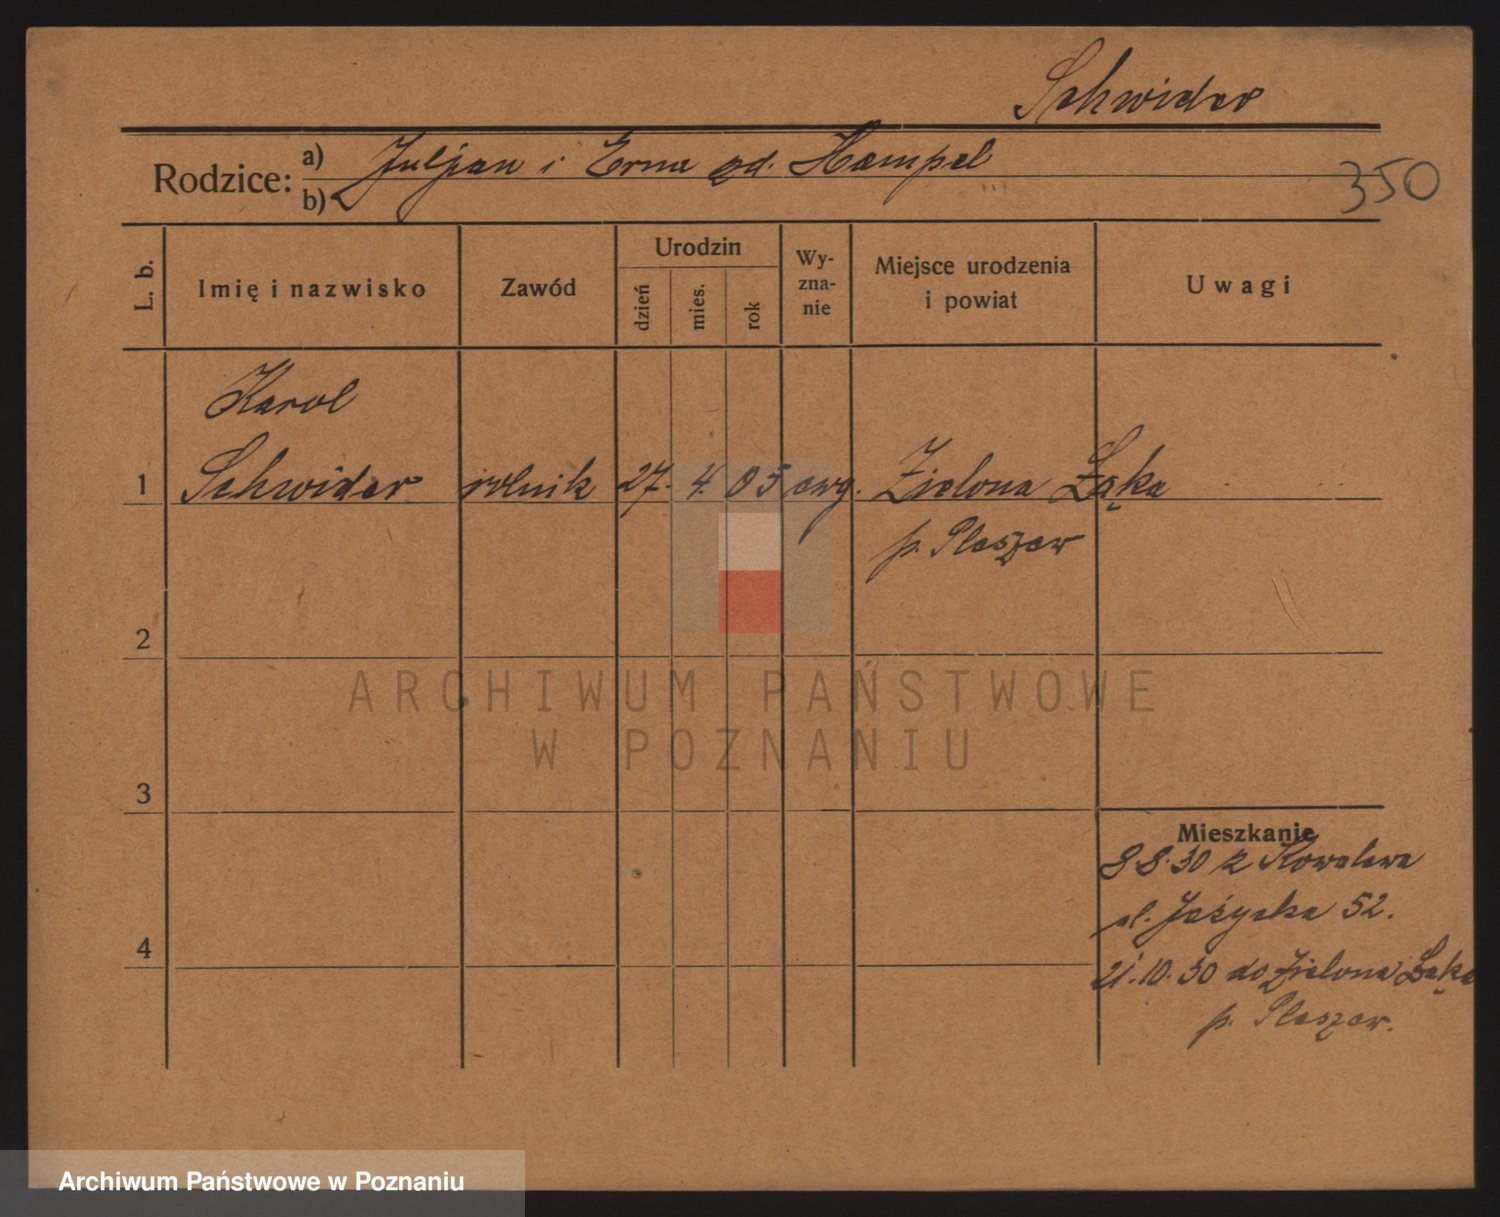 Schwider
Rodzice: a) Juljan i Erna zd. Hampel
b)
350
L. b.
Imię i nazwisko
Zawód
Urodzin
dzień
mies.
rok
Wy-
zna-
nie
Miejsce urodzenia
i powiat
Uwagi
Karol
1 Schwider rolnik 27. 4. 05 ewg. Zielona Łąka
p. Pleszew
2
ARCHIWUM PAŃSTWOWE
W POZNANIU
3
Mieszkanie
8.8.30 z Kowalewa
ul. 52.
4
21.10.30 do Zielona Łąka
p. Pleszew.
Archiwum Państwowe w Poznaniu